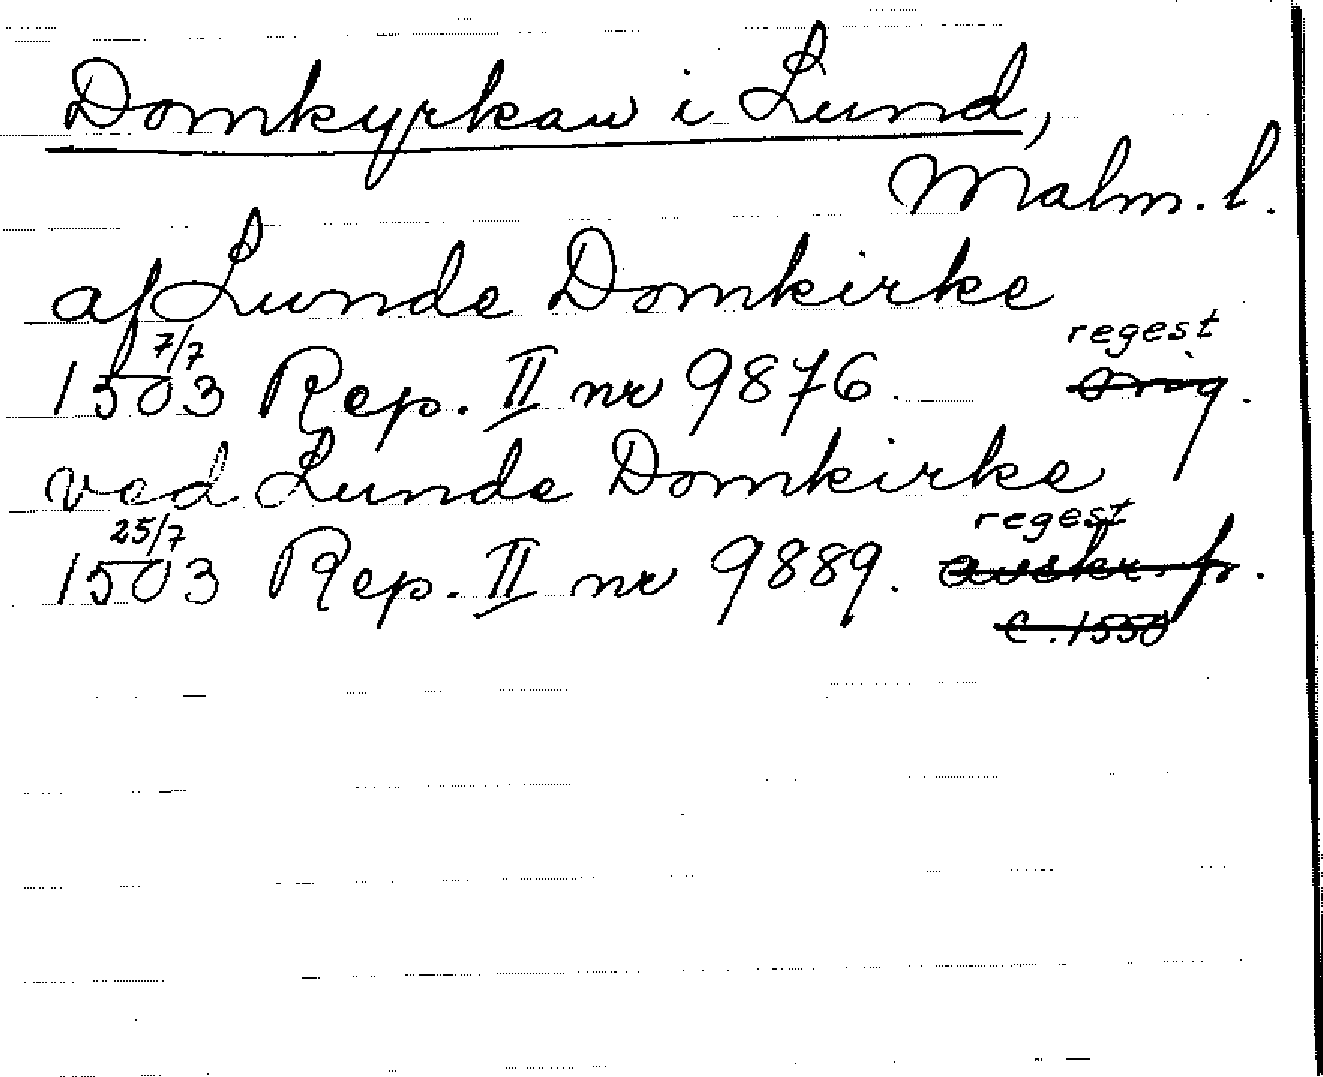 Domkyrkan i Lund,
Malm. l.
af Lunde Domkirke
regest
1503 7/7 Rep. II nr 9876. orig.
ved Lunde Domkirke
regest
1503 25/7 Rep. II nr 9889. avskr. fr.
c. 1550